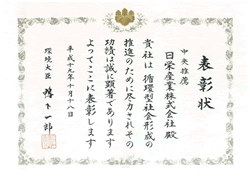 表彰状
中央推薦
日栄産業株式会社殿
貴社は循環型社会形成の
推進のために尽力されその
功績は誠に顕著であります
よってここに表彰します
平成十九年十月十八日
環境大臣 鴨下一郎